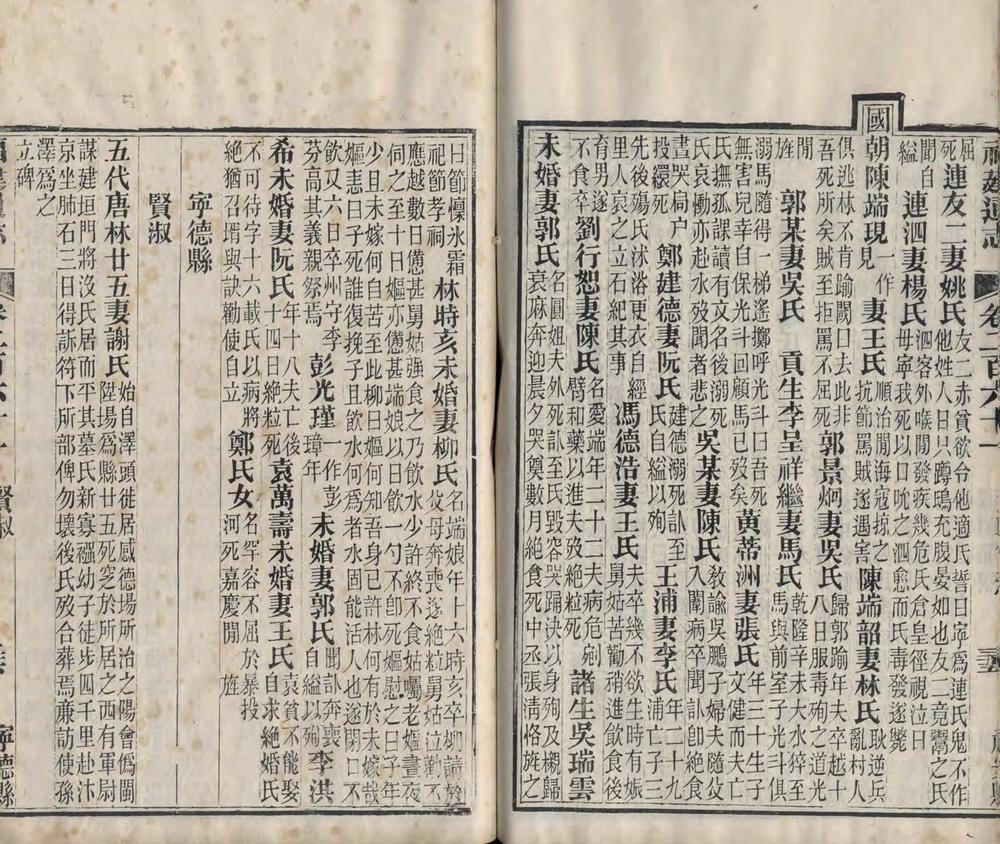 福建通志 卷二百六十一
屈死 連友二妻姚氏 友二赤貧欲令他適氏誓曰寧爲連氏鬼不作他姓人日只蹲鴟充腹晏如也友二竟鬻之氏
聞自縊 連泗妻楊氏 泗客外喉閒發疾幾危氏倉皇徑視泣曰毋寧我死以口吮之泗愈而氏毒發遂斃
國朝陳端現 一作見 妻王氏 順治閒海寇掠之坑節罵賊遂遇害 陳端韶妻林氏 耿逆兵亂村人
俱逃林不肯踰閾曰去此非吾死所矣賊至拒罵不屈死 郭景炯妻吳氏 歸郭踰年夫卒越十八日服毒殉之道光
閒旌 郭某妻吳氏 貢生李呈祥繼妻馬氏 乾隆辛未大水猝至馬與前室子光斗俱
溺馬隨得一梯遙擲呼光斗曰吾死無害兒幸自保光斗回顧馬已歿矣 黃蒂洲妻張氏 年三十生子文健而夫亡
氏撫孤課讀有文名後溺死氏哀慟亦赴水歿聞者悲之 吳某妻陳氏 教諭吳鵬子婦夫隨伩入闈病卒聞訃卽絕食
晝哭扃戶投繯死 鄭建德妻阮氏 建德溺死訃至氏自縊以殉 王浦妻李氏 年二十九浦亡子三
先後殤氏沐浴更衣自經里人哀之立石紀其事 馮德浩妻王氏 夫卒幾不欲生時有娠舅姑苦勸稍進飲食後
有男遂不食卒 劉行恕妻陳氏 名愛端年二十二夫病危剜臂和藥以進夫歿絕粒死 諸生吳瑞雲
未婚妻郭氏 名圓姐夫外死訃至氏毀容哭踊決以身殉及櫬歸衰麻奔迎晨夕哭奠數月絕食死中丞張清恪旌之
曰節懔氷霜祀節孝祠 林時亥未婚妻柳氏 名端娘年十六時亥卒柳請於父母奔喪遂絕粒舅姑泣勸不
應越數日憊甚舅姑強食之乃飲水少許終不食姑囑老嫗晝夜伺之至十日嫗亦憊甚端娘以日飲一勺不卽死嫗慰之曰子年
少且未嫁何自苦至此柳曰嫗何知吾身已許林何有於未嫁哉嫗恚曰子死誰復挽子且飲水何爲者水固能活人也遂閉口不
飲又六日卒州守李芬高其義親祭焉 彭光瑾 一作彭璋年 未婚妻郭氏 聞訃奔喪自縊以殉 李洪
希未婚妻阮氏 年十八夫亡後十四日絕粒死 袁萬壽未婚妻王氏 袁貧不能娶自求絕婚氏
不可待字十六載氏以病將絕猶召壻與訣勒使自立 鄭氏女 名罕容不屈於暴投河死嘉慶閒旌
寧德縣
賢淑
五代唐林廿五妻謝氏 始自澤頭徙居感德場所治之陽會僞閩陞揚爲縣廿五死窆於所居之西有軍尉
謀建垣門將沒氏居而平其墓氏新寡襁幼子徒步四千里赴汴京坐肺石三日得訴符下所部俾勿壞後氏歿合葬焉廉訪使孫
澤爲之立碑
賢淑 寧德縣